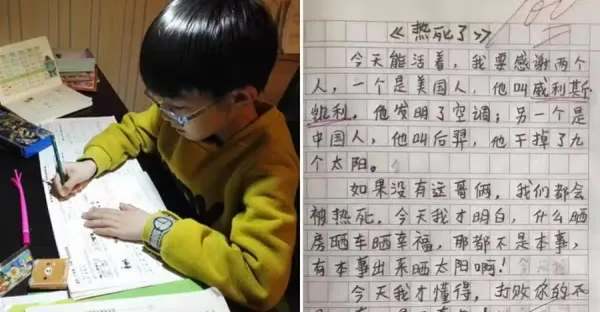 《热死了》
今天能活着，我要感谢两个
人，一个是美国人，他叫威利斯
凯利，他发明了空调；另一个是
中国人，他叫后羿，他干掉了九
个太阳。
如果没有这哥俩，我们都会
被热死，今天我才明白，什么晒
房晒车晒幸福，那都不是本事，
有本事出来晒太阳啊！
今天我才懂得，打败你的不